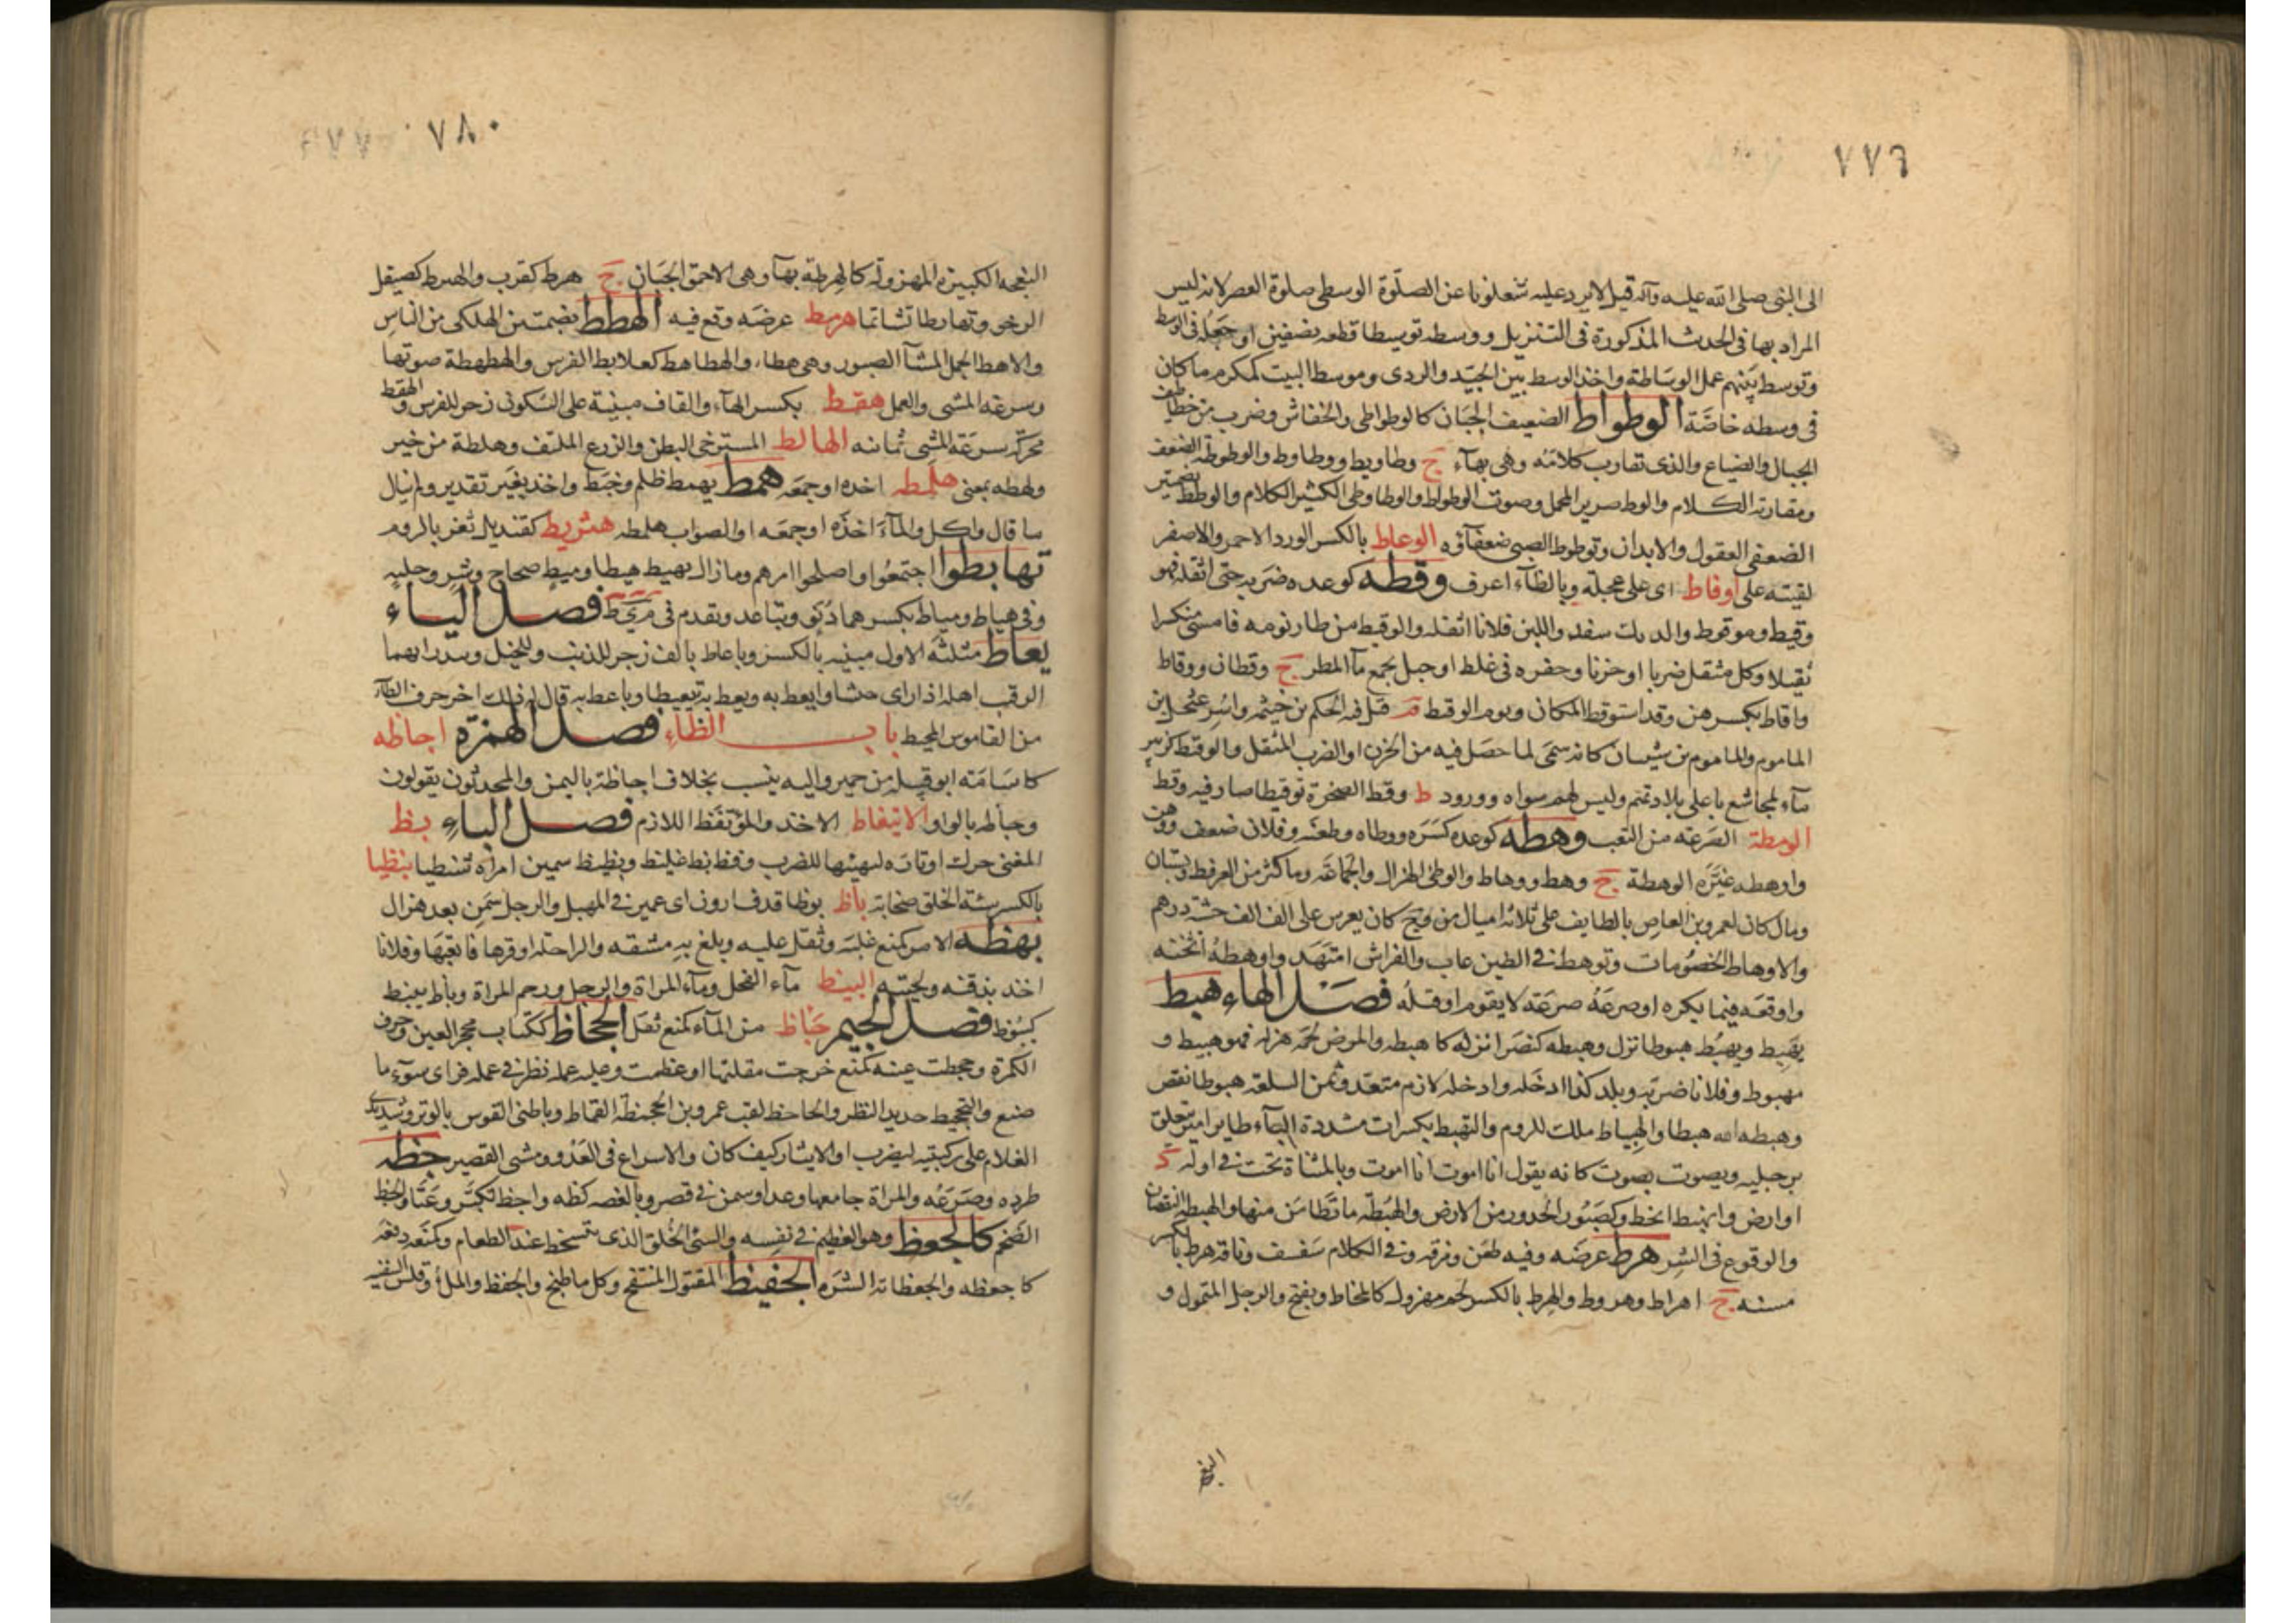 ٧٧٦
الى النبى صلى الله عليه وآله قيل لا يرد عليه شغلونا عن الصلوة الوسطى صلوة العصر لانه ليس
المراد بها فى الحدث المذكورة فى التنزيل ووسطه توسيطا قطعه نصفين او جعله فى الوسط
وتوسط بينهم عمل الوساطة واخذ الوسط بين الجيد والردى وموسط البيت كمكرم ما كان
فى وسطه خاصة الوطواط الضعيف الجبان كالوطواطى والخفاش وضرب من خطاطيف
الجبال والصياح والذى تقارب كلامه وهى بهآء ج وطاويط ووطاوط والوطوطة الضعف
ومقاربة الكلام والوط صرير المحمل وصوت الوطواط والوطاوطى الكثير الكلام والوطط بضمتين
الضعفى العقول والابدان وتوطوط الصبى ضعفآؤه الوعاط بالكسر الورد الاحمر والاصفر
لقيته على اوفاط اى على عجلة وبالظآء اعرف وقطه كوعده ضربه حتى اثقله فهو
وقيط وموقوط والديك سفد واللبن فلانا اثقله والوقيط من طار نومه فامسى منكسرا
ثقيلا وكل مثقل ضربا او حزنا وحفره فى غلظ او جبل يجمع مآ المطر ج وقطان ووقاط
واقاط بكسرهن وقد استوقط المكان ويوم الوقيط م قتل فيه الحكم بن خيثمه واسر عثجل بن
الماموم والماموم بن شيبان كانه سمى لما حصل فيه من الحزن او الضرب المثقل والوقيط كزبير
مآء لمجاشع باعلى بلاد تميم وليس لهم سواه وورود ط وقط الصخرة توقيطا صار فيه وقط
الومطة الصرعة من التعب وهطه كوعده كسره ووطاه وطعنه وفلان ضعف ووهن
واوهطه غيره الوهطة ج وهط ووهاط والوطى الهزال والجماعة وما كثر من العرفط وبستان
ومال كان لعمرو بن العاص بالطايف على ثلاثة اميال من وج كان يعرش على الف الف خشبة درهم
والاوهاط الخصومات وتوهط فى الطين غاب والفراش امتهد واوهطه اثخنه
واوقعه فيما يكره او صرعه صرعة لا يقوم او قتله فصل الهاء هبط
يهبط ويهبط هبوطا نزل وهبطه كنصر انزله كاهبطه والمرض لحمه هزله فهو هبيط و
مهبوط وفلانا ضربه وبلد كذا ادخله وادخله لازم متعد وثمن السلعة هبوطا نقص
وهبطه الله هبطا والهيباط ملك للروم والتهبط بكسرات مشددة البآء طاير اغبر يتعلق
برجليه ويصوت بصوت كانه يقول انا اموت انا اموت وبالمثناة تحت فى اوله د
او ارض وانهبط انحط وكصبور الحدور من الارض والهبطة ما تطامن منها والهبط النقصان
والوقوع فى الشر هرط عرضه وفيه طعن ومزقه وفى الكلام سفسف وناقة هرط بالكسر
مسنه ج اهراط وهروط والهرط بالكسر لحم مهزول كالمخاط ويفتح والرجل المتمول و
النعجة
٧٨٠
النعجه الكبيرة المهزولة كالهرطة بهآ وهى الاحمق الجبان ج هرط كقرب والهيرط كصيقل
الرخو وتهارطا تشاتما هرمط عرضه وقع فيه الهطط بضمتين الهلكى من الناس
والاهط الجمل المشآ الصبور وهى هطاء والهطاهط كعلابط الفرس والهطهطة صوتها
وسرعة المشى والعمل هقط بكسر الهآء والقاف مبنية على السكون زجر للفرس والهقط
محركة سرعة المشى يمانيه الهالط المسترخى البطن والزرع الملتف وهلطة من خبر
ولهطه بمعنى هلمطه اخذه او جمعه همط يهمط ظلم وخبط واخذ بغير تقدير ولم يبال
ما قال واكل والمآء اخذه او جمعه او الصواب هلمطه هنريط كقنديل ثغر بالروم
تهايطوا اجتمعوا واصلحوا امرهم وما زال يهيط هيطا وميط صحاح وشر وجلبه
وفى هياط ومياط بكسرهما دنو وتباعد وتقدم فى م ى ط فصل الياء
يعاط مثلثه الاول مبنيه بالكسر وياعاط بالف زجر للذئب وللخيل وينذر بهما
الرقيب اهله اذا راى جيشا وايعط به ويعط به تيعيطا وياعط به قال له ذلك اخر حرف الطآء
من القاموس المحيط باب الظاء فصل الهمزة اجاظه
كاسامة ابو قبيلة من حمير واليه ينسب مخلاف اجاظة باليمن والمحدثون يقولون
وجاظه بالواو الايتفاظ الاخذ والمؤتفظ اللازم فصل الباء بظ
المغنى حرك اوتاره ليهيئها للضرب وفظ بظ غليظ وبظيظ سمين امراة شنظيا بنظيا
بالكسر سيئة الخلق صخابة باظ بوظا قذف ارون اى عمير فى المهبل والرجل سمن بعد هزال
بهظه الامر كمنع غلبه وثقل عليه وبلغ به مشقه والراحلة اوقرها فاتعبها وفلانا
اخذ بذقنه ولحيته البيظ مآء الفحل ومآء المراة والرجل ورحم المراة وباظ يبيظ
كبيوظ فصل الجيم جئاظ من المآء كمنع ثقل الجحاظ ككتاب محجر العين وحرف
الكمرة وجحظت عينه كمنع خرجت مقلتها او عظمت وعليه عمله نظر فى عمله فراى سوء ما
صنع والتجحيظ حديد النظر والجاحظ لقب عمرو بن
الغلام على ركبتيه ليضرب او الايثار كيف كان والاسراع فى العدو ومشى القصير جظه
طرده وصرعه والمراة جامعها وعدا وسمن فى قصر وبالغصه كظه واجظ تكبر وعتا والجظ
الضخم كالجعظ وهو العظيم فى نفسه والسئ الخلق الذى يتسخط عند الطعام وكمنعه دفعه
كاجعظه والجعظاية الشره الجفيظ المقتول المنتفخ وكل ما طبخ والجفظ والملأ وقلس السفينة